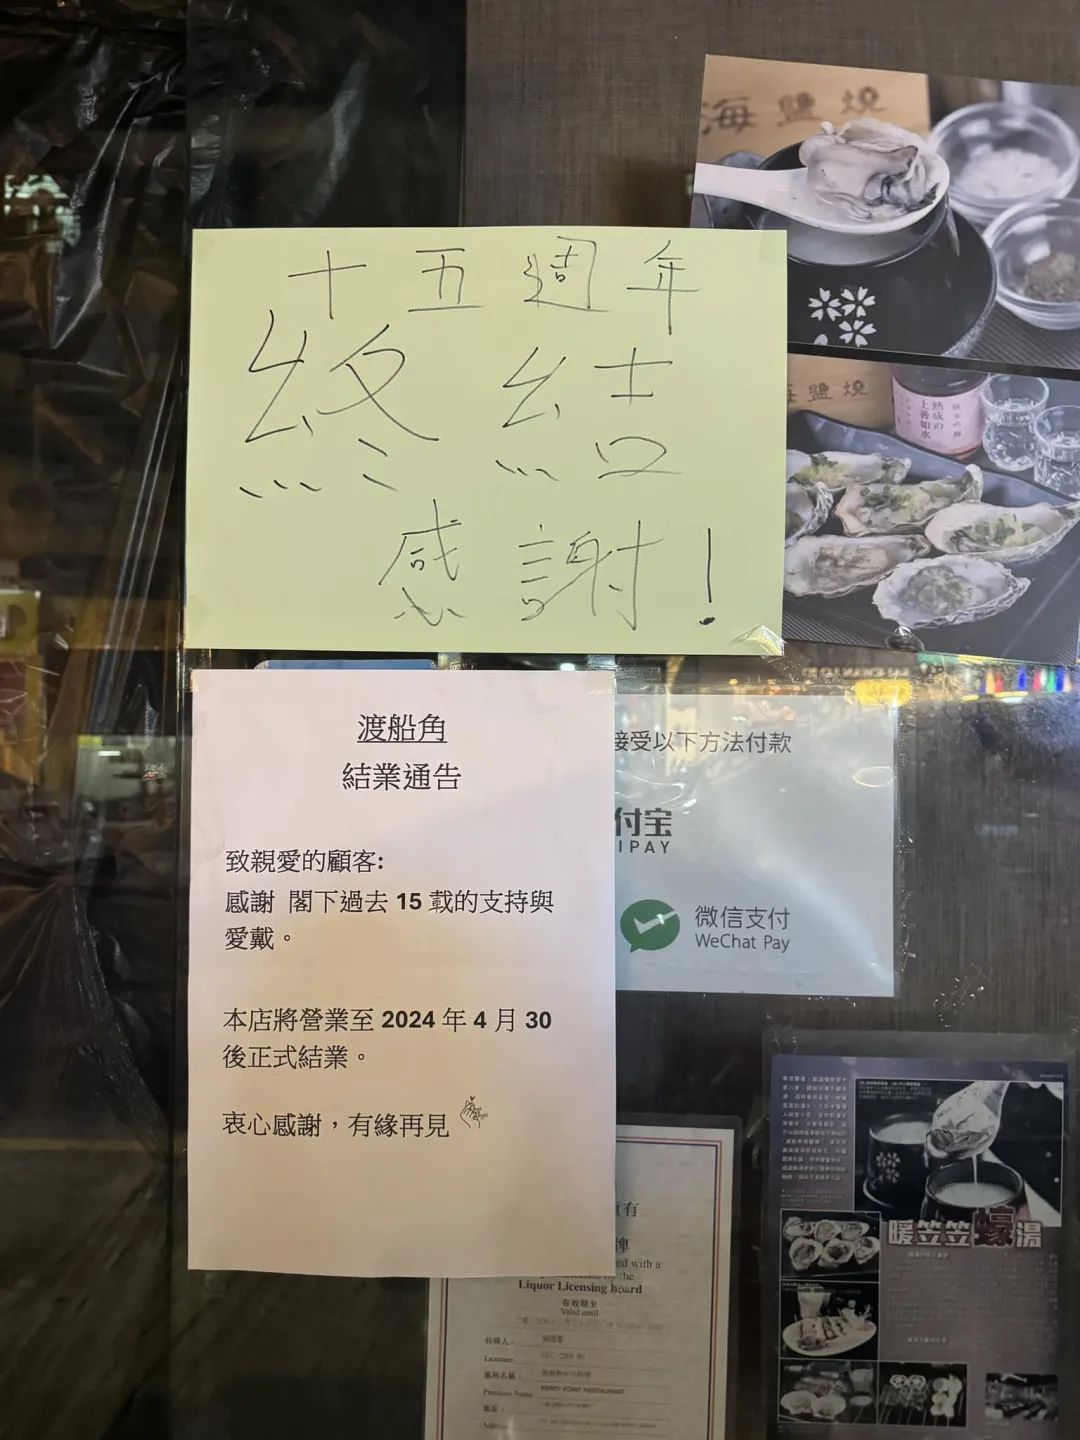 海鹽燒
十五週年
終結
感謝!
海鹽燒
熟成の
上善如水
渡船角
結業通告
致親愛的顧客:
感謝 閣下過去 15 載的支持與
愛戴。
本店將營業至 2024 年 4 月 30
後正式結業。
衷心感謝,有緣再見
接受以下方法付款
付宝
IPAY
微信支付
WeChat Pay
有
牌
ed with a
the
Liquor Licensing board
有效期至
Valid until
持牌人:
Licensee
Premises Name
FERRY POINT RESTAURANT
地址:
Address
暖笠笠蠔湯